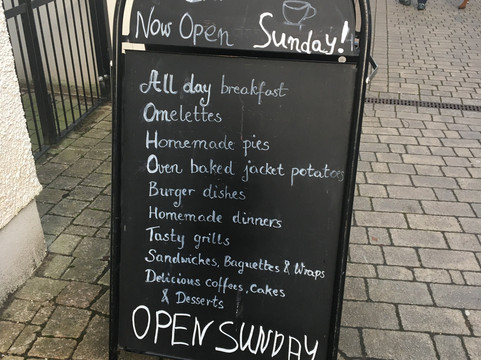 Now Open Sunday!
All day breakfast
Omelettes
Homemade pies
Oven baked jacket potatoes
Burger dishes
Homemade dinners
Tasty grills
Sandwiches, Baguettes & Wraps
Delicious coffees, Cakes
& Desserts
OPEN SUNDAY